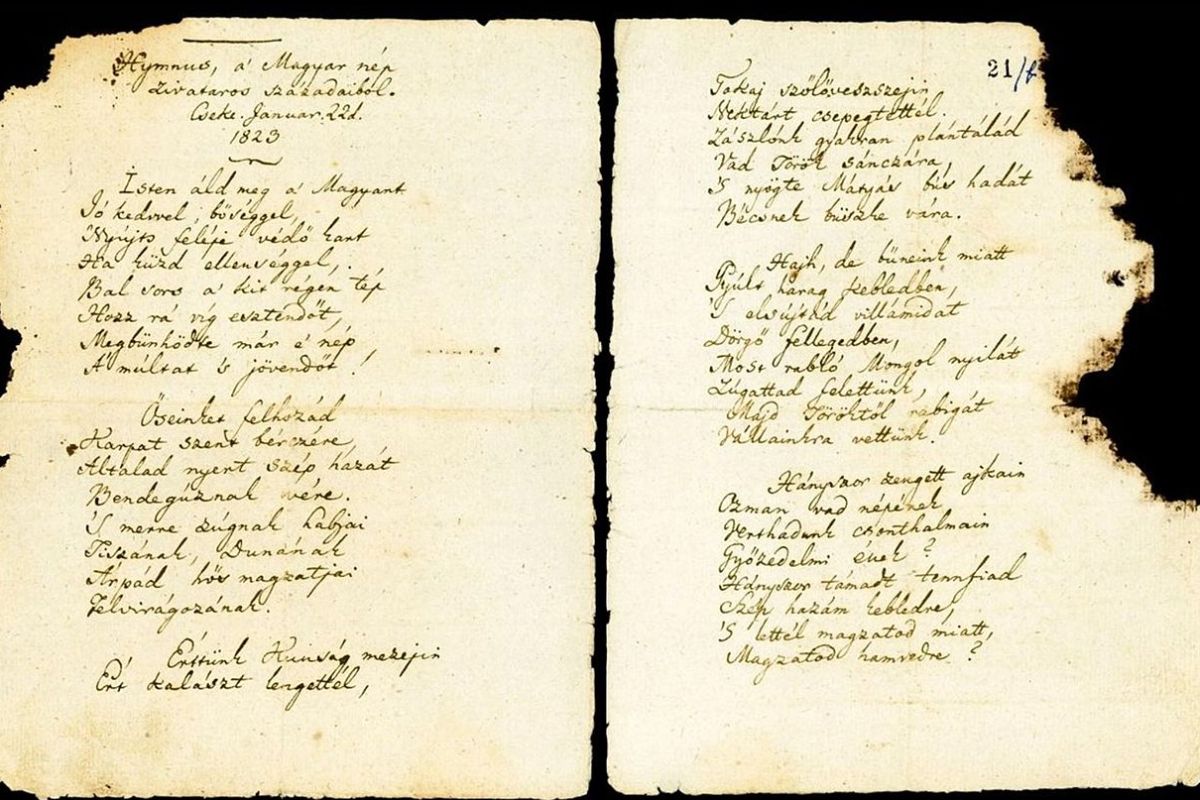 Hymnus, a' Magyar nép
zivataros századaiból.
Cseke. Januar. 22d.
1823
Isten áld meg a' Magyart
Jó kedvvel, bőséggel,
Nyújts feléje védő kart
Ha küzd ellenséggel,
Bal sors a' kit régen tép
Hozz rá víg esztendőt,
Megbünhödte már e' nép
A' múltat 's jövendőt!
Őseinket felhozád
Kárpat szent bérczére,
Általad nyert szép hazát
Bendegúznak vére.
'S merre zúgnak habjai
Tiszának, Dunának
Árpád hős magzatjai
Felvirágozának.
Érttünk Kunság mezejin
Ért kalászt lengettél,
21/f
Tokaj szőlőveszszejin
Nektárt csepegtettél.
Zászlónk gyakran plántálád
Vad Török sánczára,
'S nyögte Mátyás bús hadát
Bécsnek büszke vára.
Hajh, de bűneink miatt
Gyúlt harag kebledben,
'S elsujtád villámidat
Dörgő fellegedben,
Most rabló Mongol nyilát
Zúgattad felettünk,
Majd Töröktől rabigát
Vállainkra vettünk.
Hányszor zengett ajkain
Ozman vad népének
Vert hadunk csonthalmain
Győzedelmi ének?
Hányszor támadt tennfiad
Szép hazám kebledre,
'S lettél magzatod miatt,
Magzatod hamvedre?